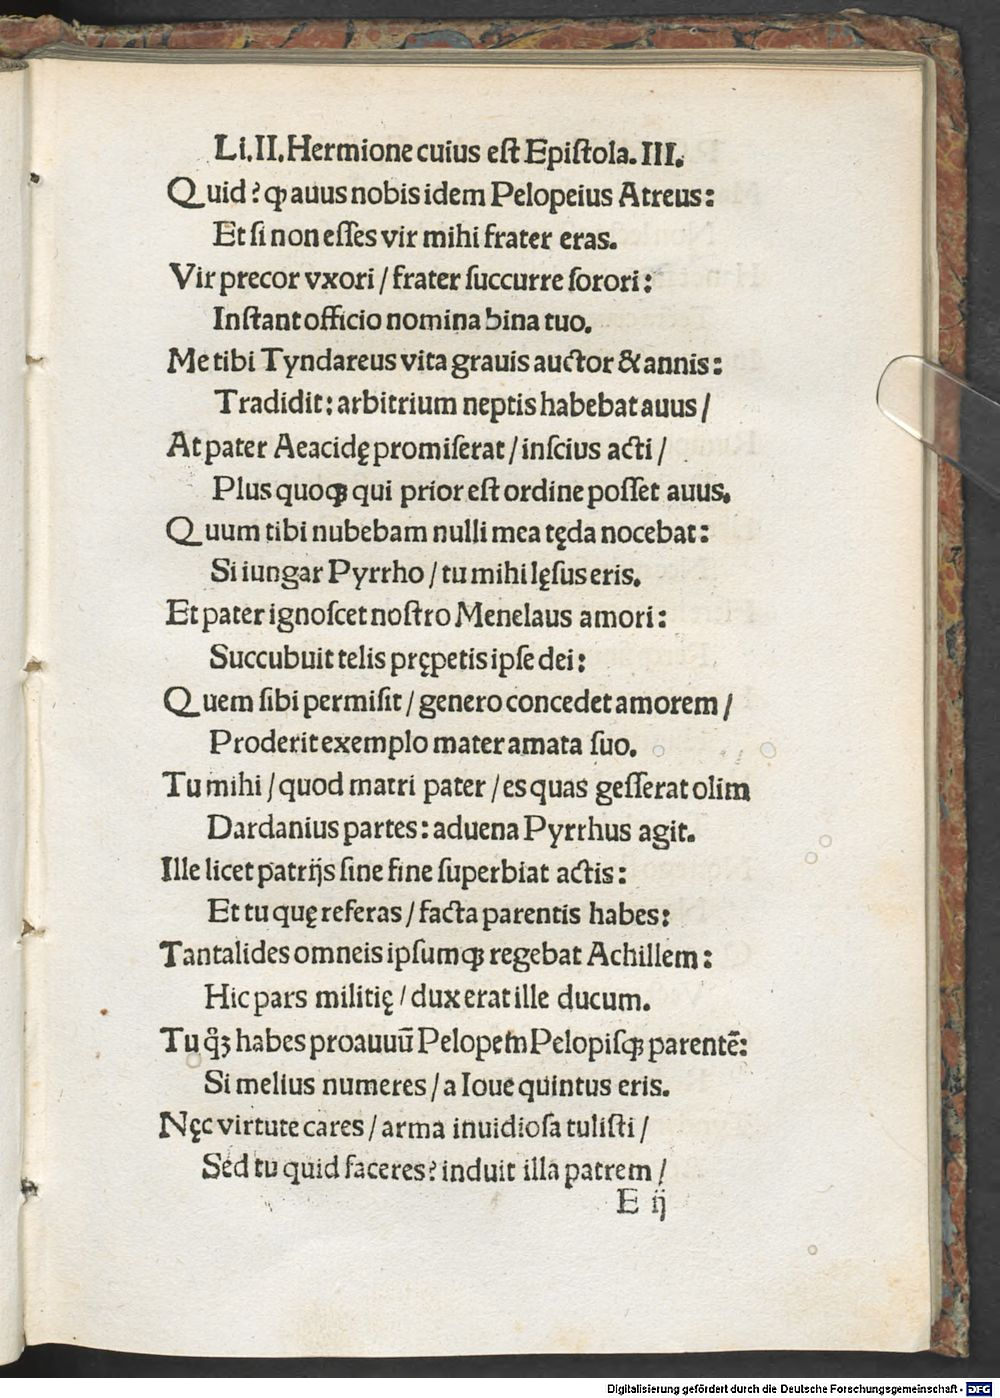 Li.II.Hermione cuius eſt Epiſtola.III.
Quid? ꝙ auus nobis idem Pelopeius Atreus:
Et ſi non eſſes vir mihi frater eras.
Vir precor vxori / frater ſuccurre ſorori:
Inſtant officio nomina bina tuo.
Me tibi Tyndareus vita grauis auctor & annis:
Tradidit: arbitrium neptis habebat auus /
At pater Aeacidę promiſerat / inſcius acti /
Plus quoqꝫ qui prior eſt ordine poſſet auus.
Quum tibi nubebam nulli mea tęda nocebat:
Si iungar Pyrrho / tu mihi lęſus eris.
Et pater ignoſcet noſtro Menelaus amori:
Succubuit telis prępetis ipſe dei:
Quem ſibi permiſit / genero concedet amorem /
Proderit exemplo mater amata ſuo.
Tu mihi / quod matri pater / es quas geſſerat olim
Dardanius partes: aduena Pyrrhus agit.
Ille licet patrijs ſine fine ſuperbiat actis:
Et tu quę referas / facta parentis habes:
Tantalides omneis ipſumqꝫ regebat Achillem:
Hic pars militię / dux erat ille ducum.
Tu qͦꝫ habes proauuū Pelopem Pelopiſqꝫ parentē:
Si melius numeres / a Ioue quintus eris.
Nęc virtute cares / arma inuidioſa tuliſti /
Sed tu quid faceres? induit illa patrem /
E ij
Digitalisierung gefördert durch die Deutsche Forschungsgemeinschaft - DFG